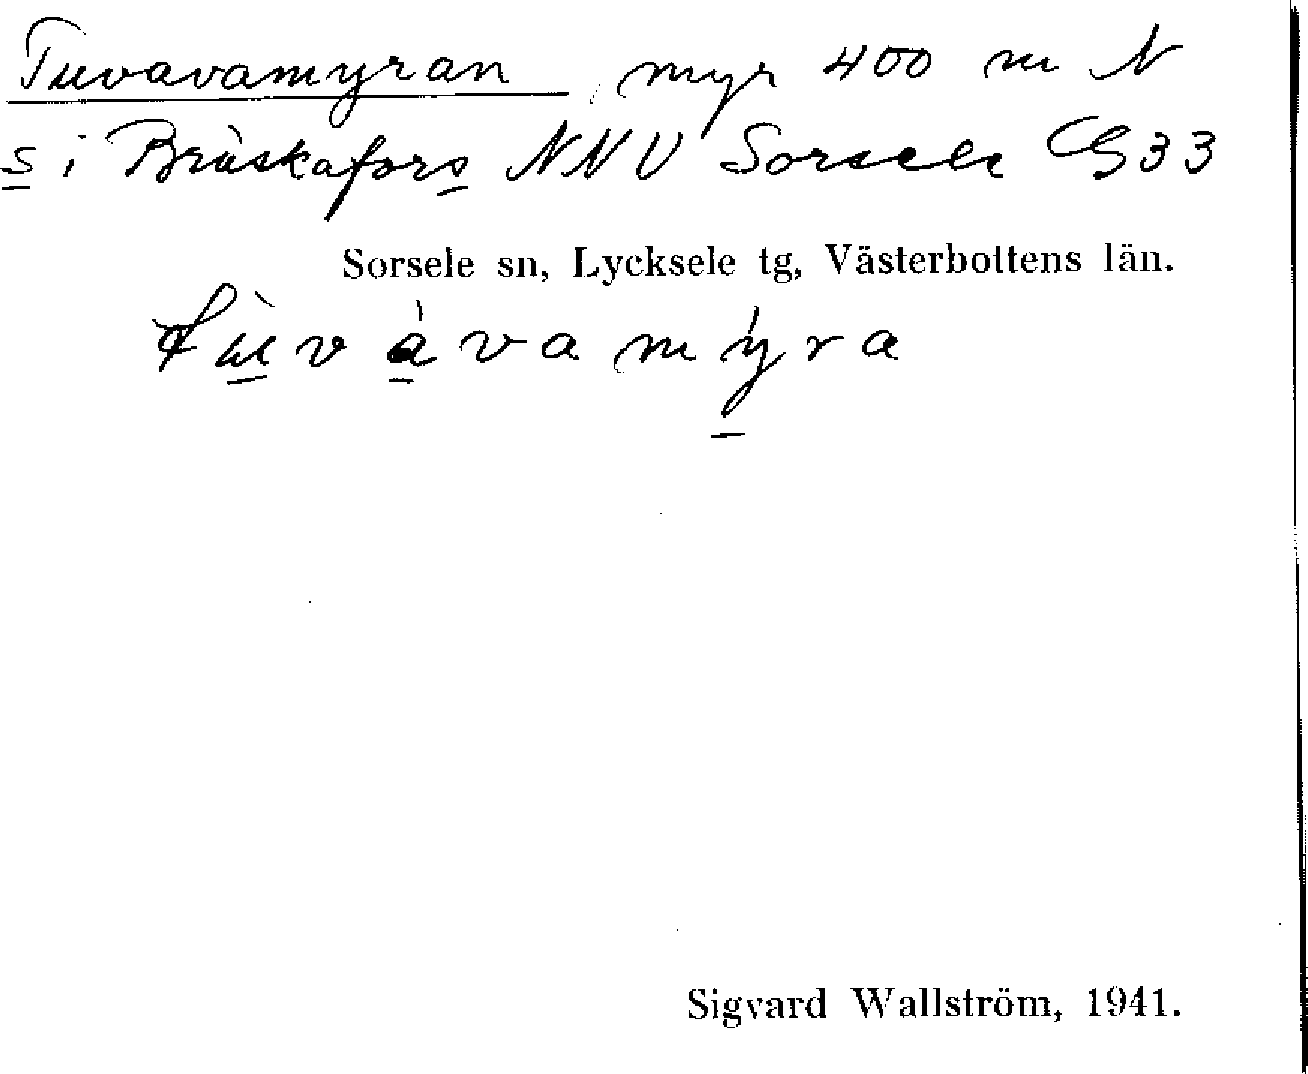 Tuvavamyran, myr 400 m N
s i Bräskafors NNV Sorsele G33
Sorsele sn, Lycksele tg, Västerbottens län.
tùvávamýra
Sigvard Wallström, 1941.